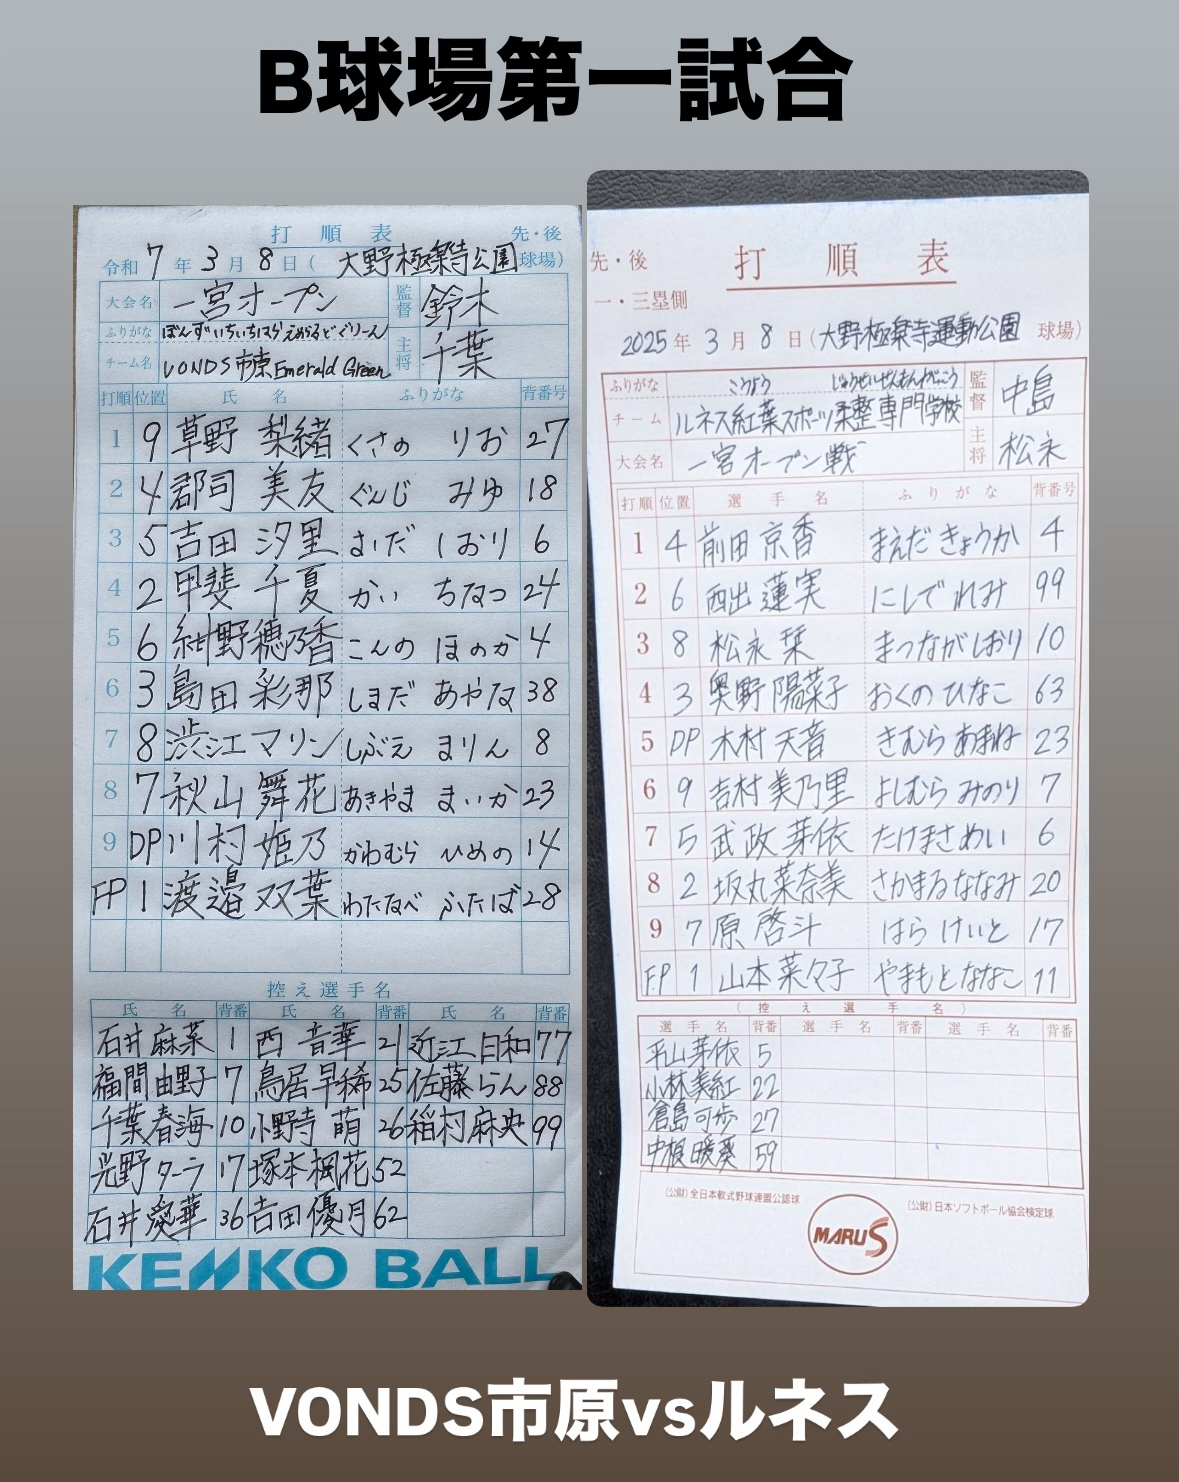 B球場第一試合
打順表 先・後
令和 7 年 3 月 8 日 ( 大野極楽寺公園 球場)
大会名 一宮オープン 監督 鈴木
ふりがな ぼんずいちはら えめらるどぐりーん
チーム名 VONDS市原Emerald Green 主将 千葉
打順 位置 氏名 ふりがな 背番号
1 9 草野 梨緒 くさの りお 27
2 4 郡司 美友 ぐんじ みゆ 18
3 5 吉田 汐里 よしだ しおり 6
4 2 甲斐 千夏 かい ちなつ 24
5 6 紺野穂乃香 こんの ほのか 4
6 3 島田 彩那 しまだ あやな 38
7 8 渋江マリン しぶえ まりん 8
8 7 秋山 舞花 あきやま まいか 23
9 DP 川村 姫乃 かわむら ひめの 14
FP 1 渡邉 双葉 わたなべ ふたば 28
控え選手名
氏名 背番 氏名 背番 氏名 背番
石井麻菜 1 西 音華 21 近江日和 77
福間由野子 7 鳥居早稀 25 佐藤らん 88
千葉春海 10 小野寺 萌 26 稲村麻央 99
光野ターラ 17 塚本楓花 52
石井愛華 36 吉田優月 62
KENKO BALL
先・後 打順表
一・三塁側
2025 年 3 月 8 日 (大野極楽寺運動公園 球場)
ふりがな こうよう じゅうせいせんもんがっこう 監督 中島
チーム ルネス紅葉スポーツ柔整専門学校
大会名 一宮オープン戦 主将 松永
打順 位置 選手名 ふりがな 背番号
1 4 前田京香 まえだ きょうか 4
2 6 西出蓮実 にしで れみ 99
3 8 松永栞 まつながしおり 10
4 3 奥野陽菜子 おくの ひなこ 63
5 DP 木村天音 きむら あまね 23
6 9 吉村美乃里 よしむら みのり 7
7 5 武政芽依 たけまさ めい 6
8 2 坂丸菜奈美 さかまる ななみ 20
9 7 原啓斗 はら けいと 17
F.P 1 山本菜々子 やまもと ななこ 11
(控え選手名)
選手名 背番 選手名 背番 選手名 背番
平山芽依 5
小林美紅 22
倉島可歩 27
中根暖葵 59
(公財)全日本軟式野球連盟公認球
MARUS
(公財)日本ソフトボール協会検定球
VONDS市原vsルネス